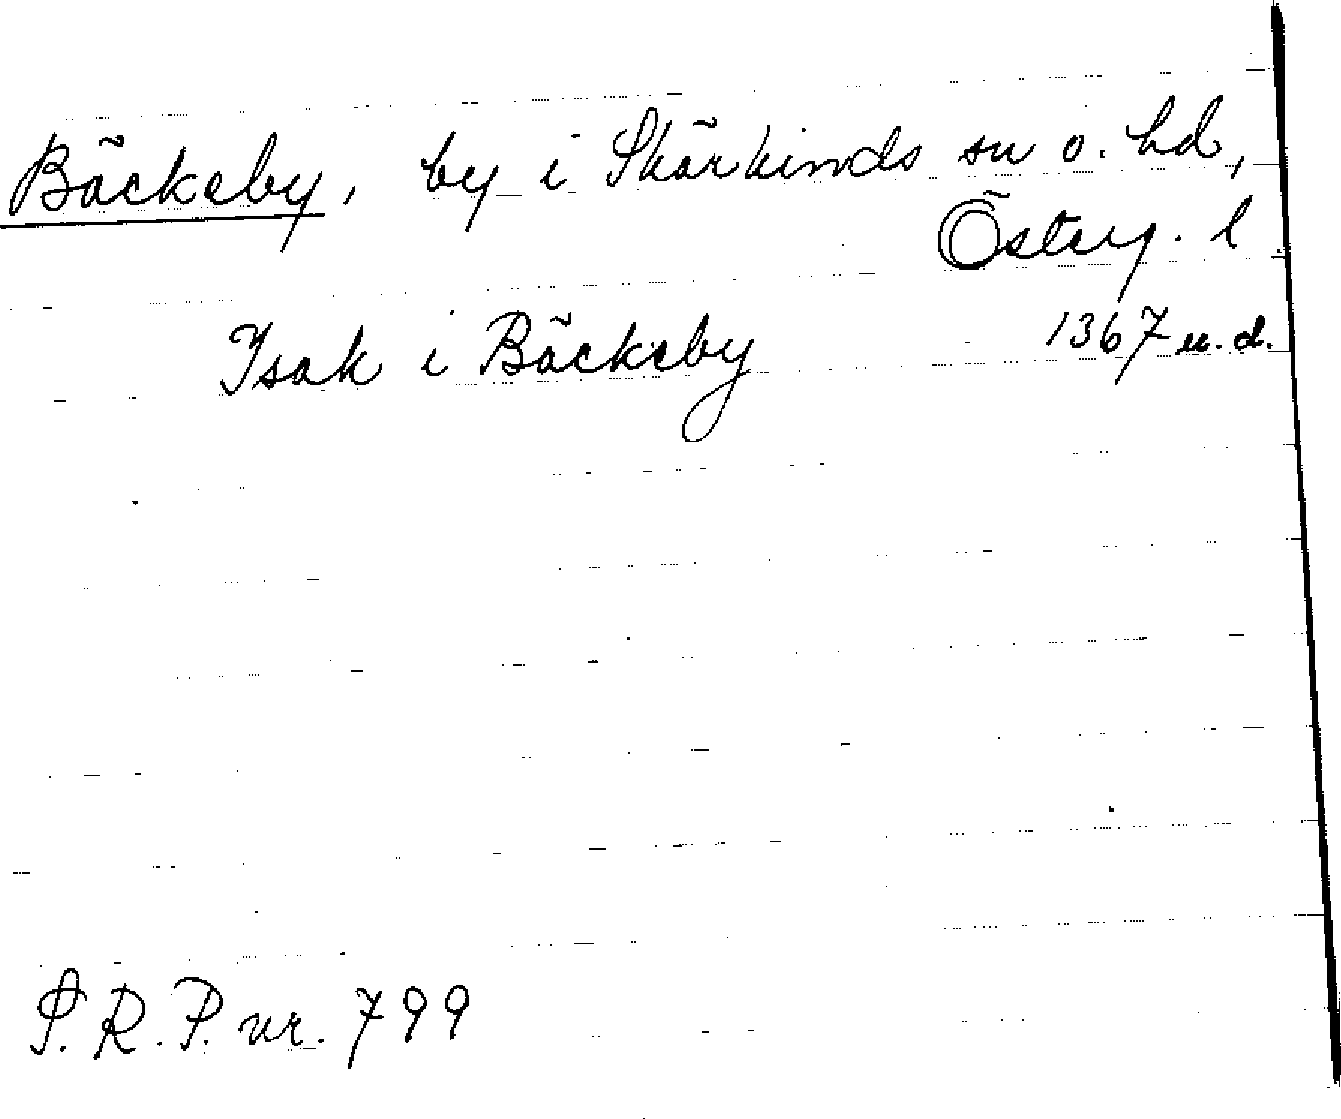 Bäckeby, by i Skärkinds sn o. hd,
Österg. l
Isak i Bäckeby 1367 u. d.
S. R. P. nr. 799